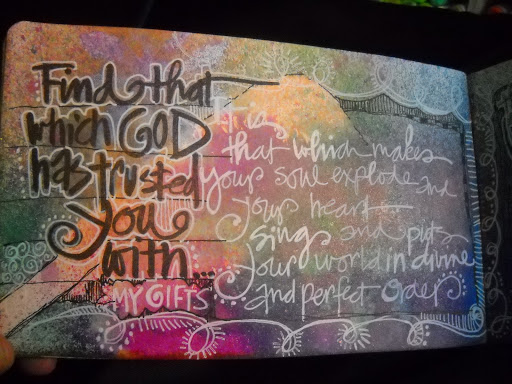 Find that
which GOD
has trusted
you
with...
MY GIFTS
It is
that which makes
your soul explode and
your heart
sings and puts
your world in divine
and perfect order